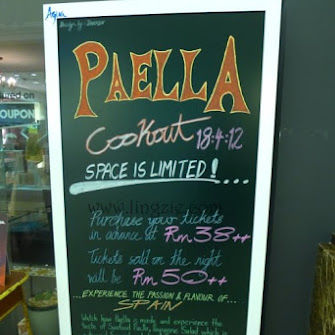 Design by:
PAELLA
Cookout 18·4·12
SPACE IS LIMITED!....
www.lingzie.com
Purchase your tickets
in advance at Rm38++
Tickets sold on the night
will be Rm50++
...EXPERIENCE THE PASSION & FLAVOUR OF...
SPAIN
Watch how Paella is made and experience the
taste of Seafood Paella,
OUPON